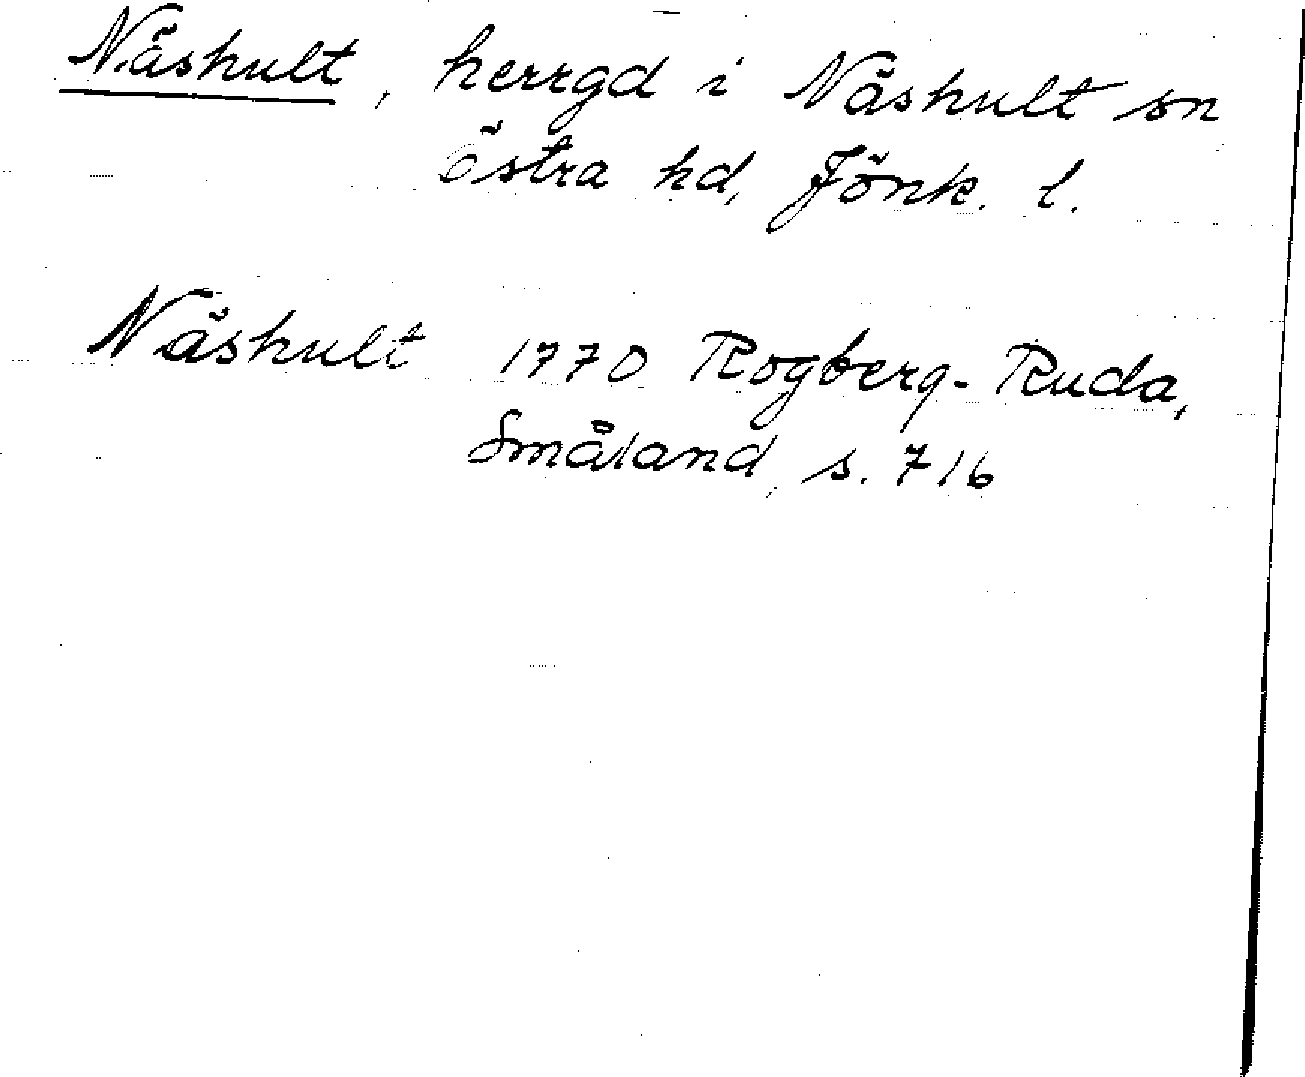 Näshult, herrgd i Näshult sn
Östra hd, Jönk. l.
Näshult 1770 Rogberg-Ruda,
Småland, s. 716